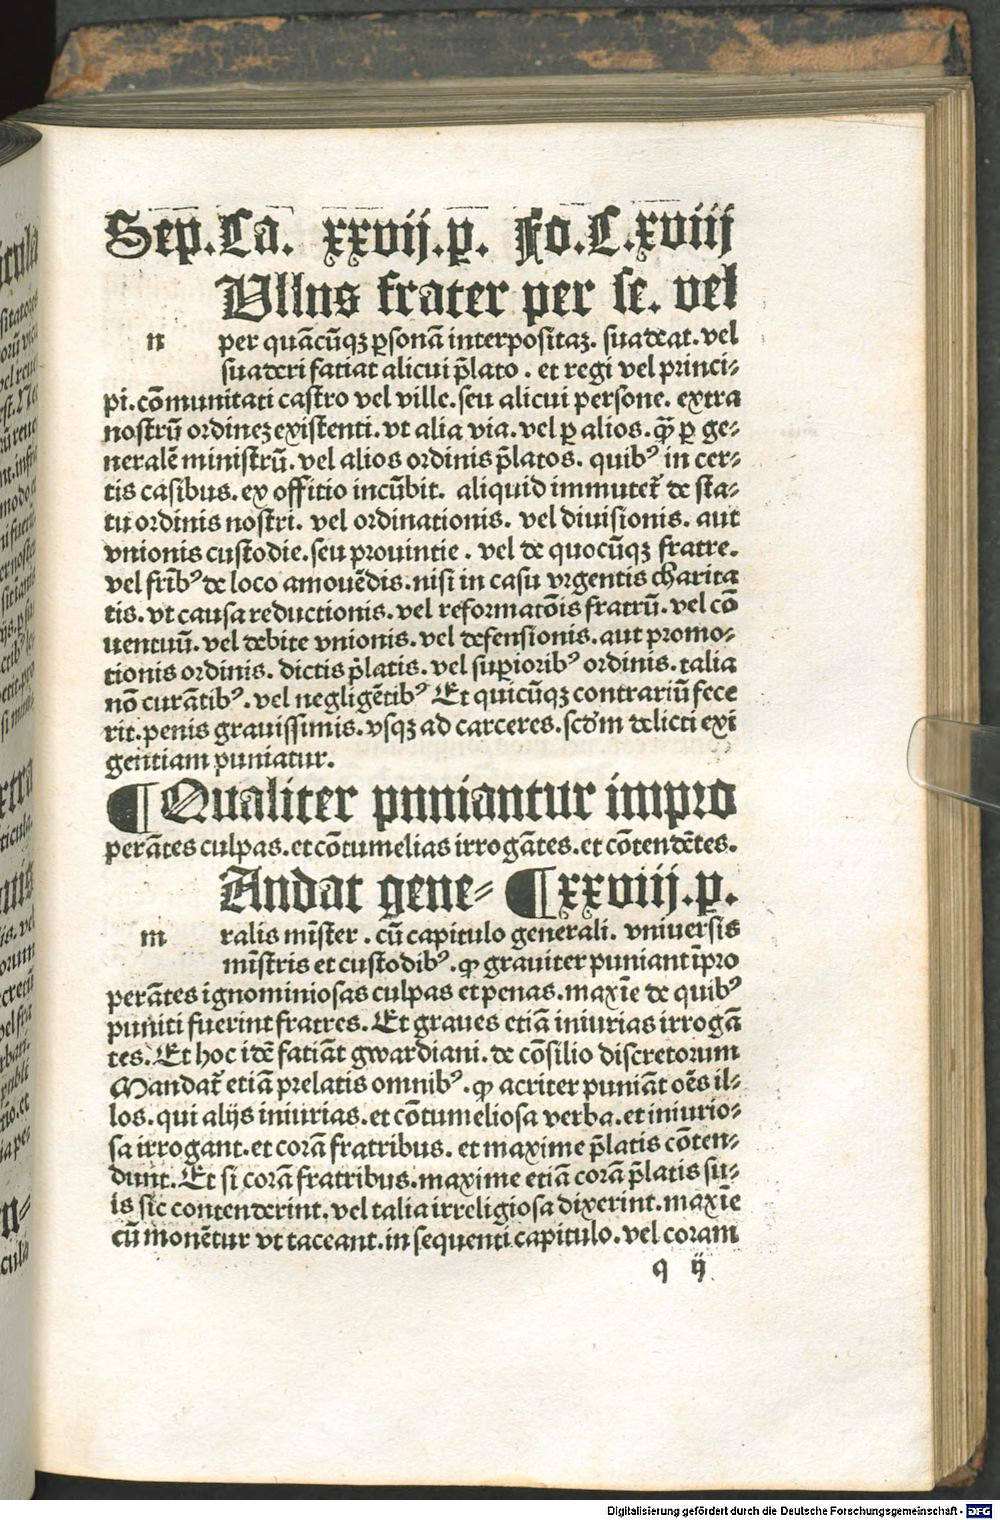 Sep. Ca. xxvij. p. Fo. C. xviij
Ullus frater per se. vel
n per quãcũqꝫ ꝑsonã interpositaꝫ. suadeat. vel
suaderi fatiat alicui p̃lato. et regi vel princi⸗
pi. cõmunitati castro vel ville. seu alicui persone. extra
nostrũ ordineꝫ existenti. vt alia via. vel ꝑ alios. ꝙ̃ ꝑ ge⸗
neralẽ ministrũ. vel alios ordinis p̃latos. quibꝰ in cer⸗
tis casibus. ex offitio incũbit. aliquid immutet᷑ de sta⸗
tu ordinis nostri. vel ordinationis. vel diuisionis. aut
vnionis custodie. seu prouintie. vel de quocũqꝫ fratre.
vel fr̃ibꝰ de loco amouẽdis. nisi in casu vrgentis charita
tis. vt causa reductionis. vel reformatõis fratrũ. vel cõ
uentuũ. vel debite vnionis. vel defensionis. aut promo⸗
tionis ordinis. dictis p̃latis. vel suꝑioribꝰ ordinis. talia
nõ curãtibꝰ. vel negligẽtibꝰ Et quicũqꝫ contrariũ fece
rit. penis grauissimis. vsqꝫ ad carceres. scd̃m delicti exi
gentiam puniatur.
¶ Qualiter puniantur impro
perãtes culpas. et cõtumelias irrogãtes. et cõtendẽtes.
Andat gene⸗ ¶ xxviij. p.
m ralis mĩster. cũ capitulo generali. vniuersis
mĩstris et custodibꝰ. ꝙ grauiter puniant ĩpro
perãtes ignominiosas culpas et penas. maxĩe de quibꝰ
puniti fuerint fratres. Et graues etiã iniurias irrogã
tes. Et hoc idẽ fatiãt gwardiani. de cõsilio discretorum
Mandat᷑ etiã prelatis omnibꝰ. ꝙ acriter puniãt oẽs il⸗
los. qui alijs iniurias. et cõtumeliosa verba. et iniurio⸗
sa irrogant. et corã fratribus. et maxime p̃latis cõten⸗
dunt. Et si corã fratribus. maxime etiã corã p̃latis su⸗
is sic contenderint. vel talia irreligiosa dixerint. maxĩe
cũ monẽtur vt taceant. in sequenti capitulo. vel coram
q ij
Digitalisierung gefördert durch die Deutsche Forschungsgemeinschaft - DFG